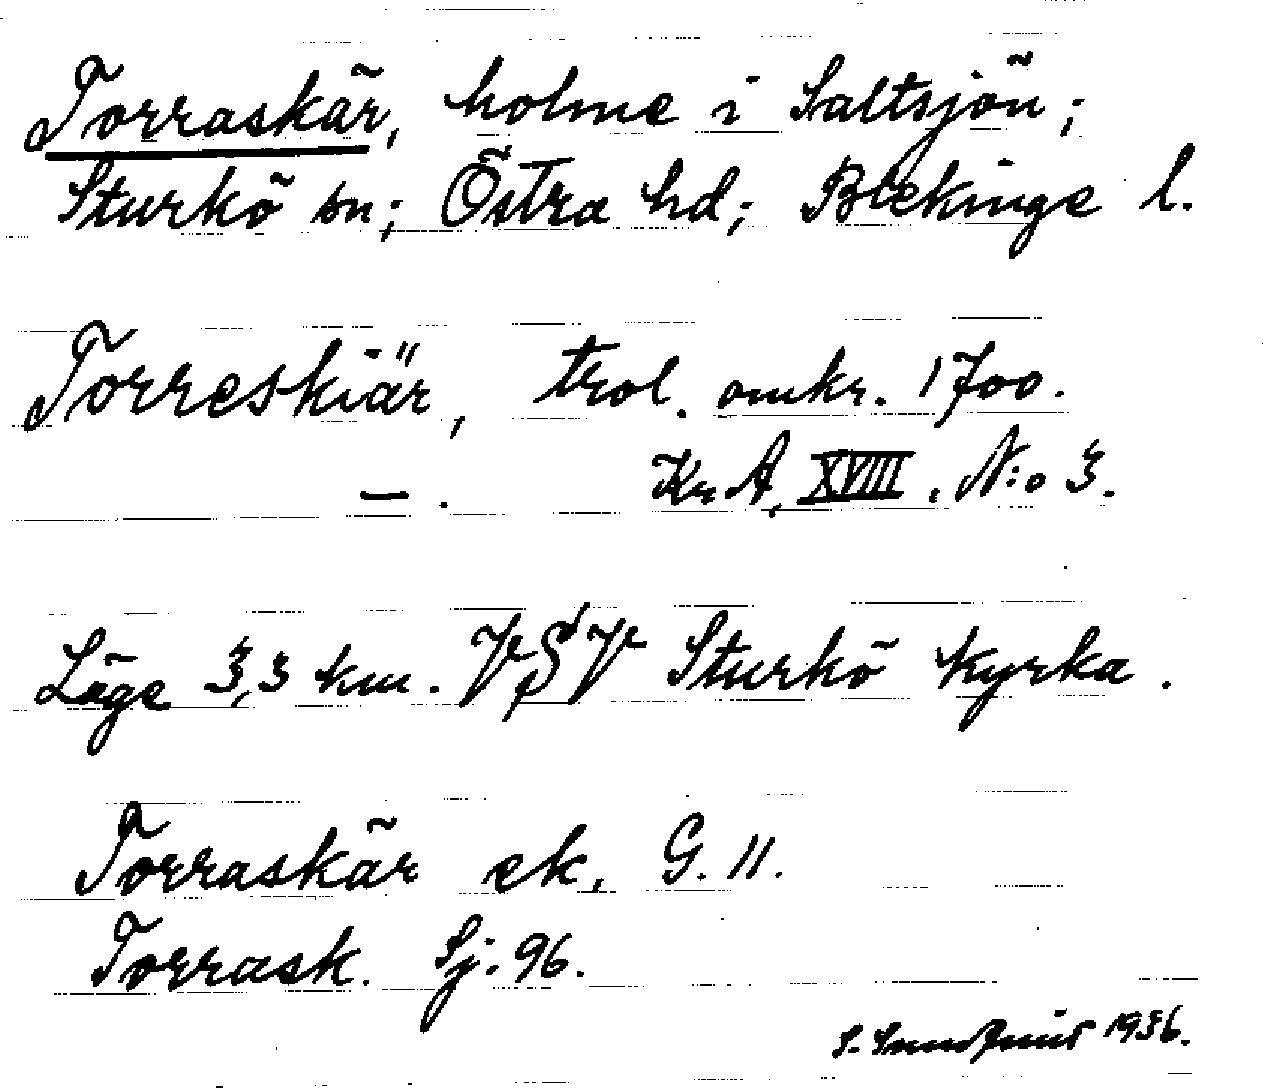 Torraskär, holme i Saltsjön;
Sturkö sn; Östra hd; Blekinge l.
Torreskiär, trol. omkr. 1700.
— . KrA, XVIII. N:o 3.
Läge 3,3 km. VSV Sturkö kyrka.
Torraskär ek. G. 11.
Torrask. Sj. 96.
S. 1936.